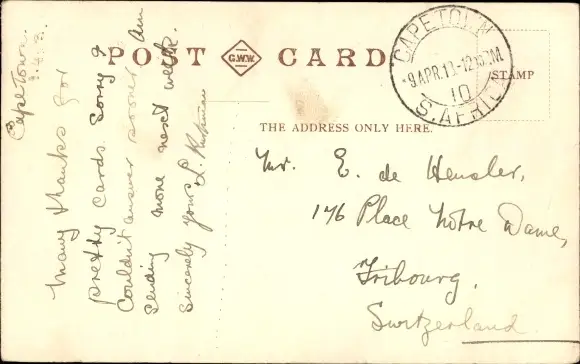 POST CARD
G.W.W.
CAPETOWN
9 APR. 13 - 12 PM
10
S. AFRICA
STAMP
THE ADDRESS ONLY HERE.
Capetown.
Many thanks for
pretty cards. Sorry I
Couldn't answer sooner. Am
sending more next week.
Sincerely yours L.
Mr. E. de Hensler,
176 Place Notre Dame,
Fribourg.
Switzerland